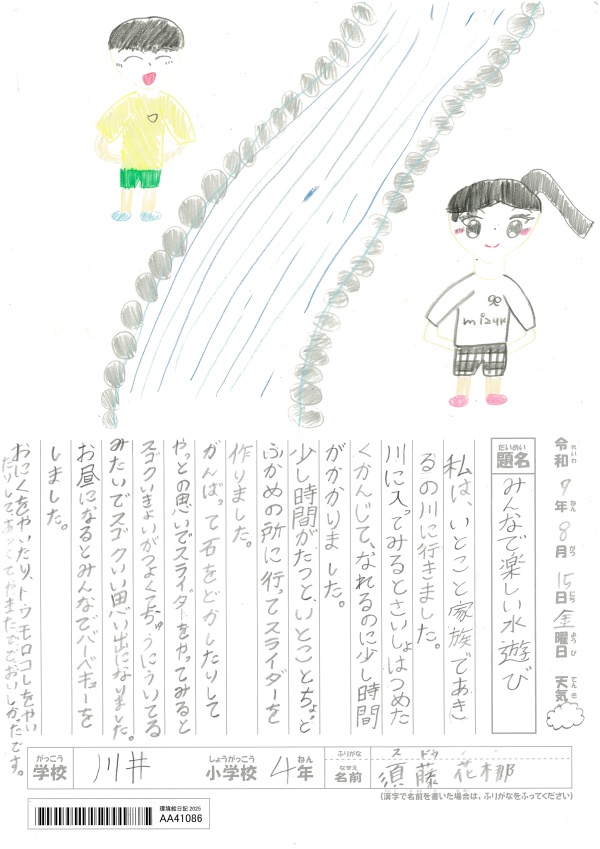 mizuk
令和7年8月15日金曜日 天気
れいわ ねん がつ にち ようび てんき
だいめい
題名 みんなで楽しい水遊び
私は、いとこと家族であき
るの川に行きました。
川に入ってみるとさいしょはつめた
くかんじて、なれるのに少し時間
がかかりました。
少し時間がたつと、いとことちょっと
ふかめの所に行ってスライダーを
作りました。
がんばって石をどかしたりして
やっとの思いでスライダーをやってみると
スゴクいきょいがつよくてちゅうにういてる
みたいでスゴクいい思い出になりました。
お昼になるとみんなでバーベキューを
しました。
おにくをやいたり、トウモロコしをやい
たりしてあつくて
おいしかったです。
がっこう しょうがっこう ねん ふりがな ス ドウ
学校 川井 小学校 4年 名前 須藤 花梛
なまえ
(漢字で名前を書いた場合は、ふりがなをふってください)
環境絵日記 2025
AA41086